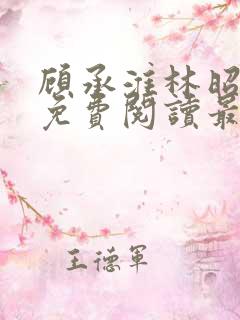 顾承淮林昭
免費閱讀最
王德軍